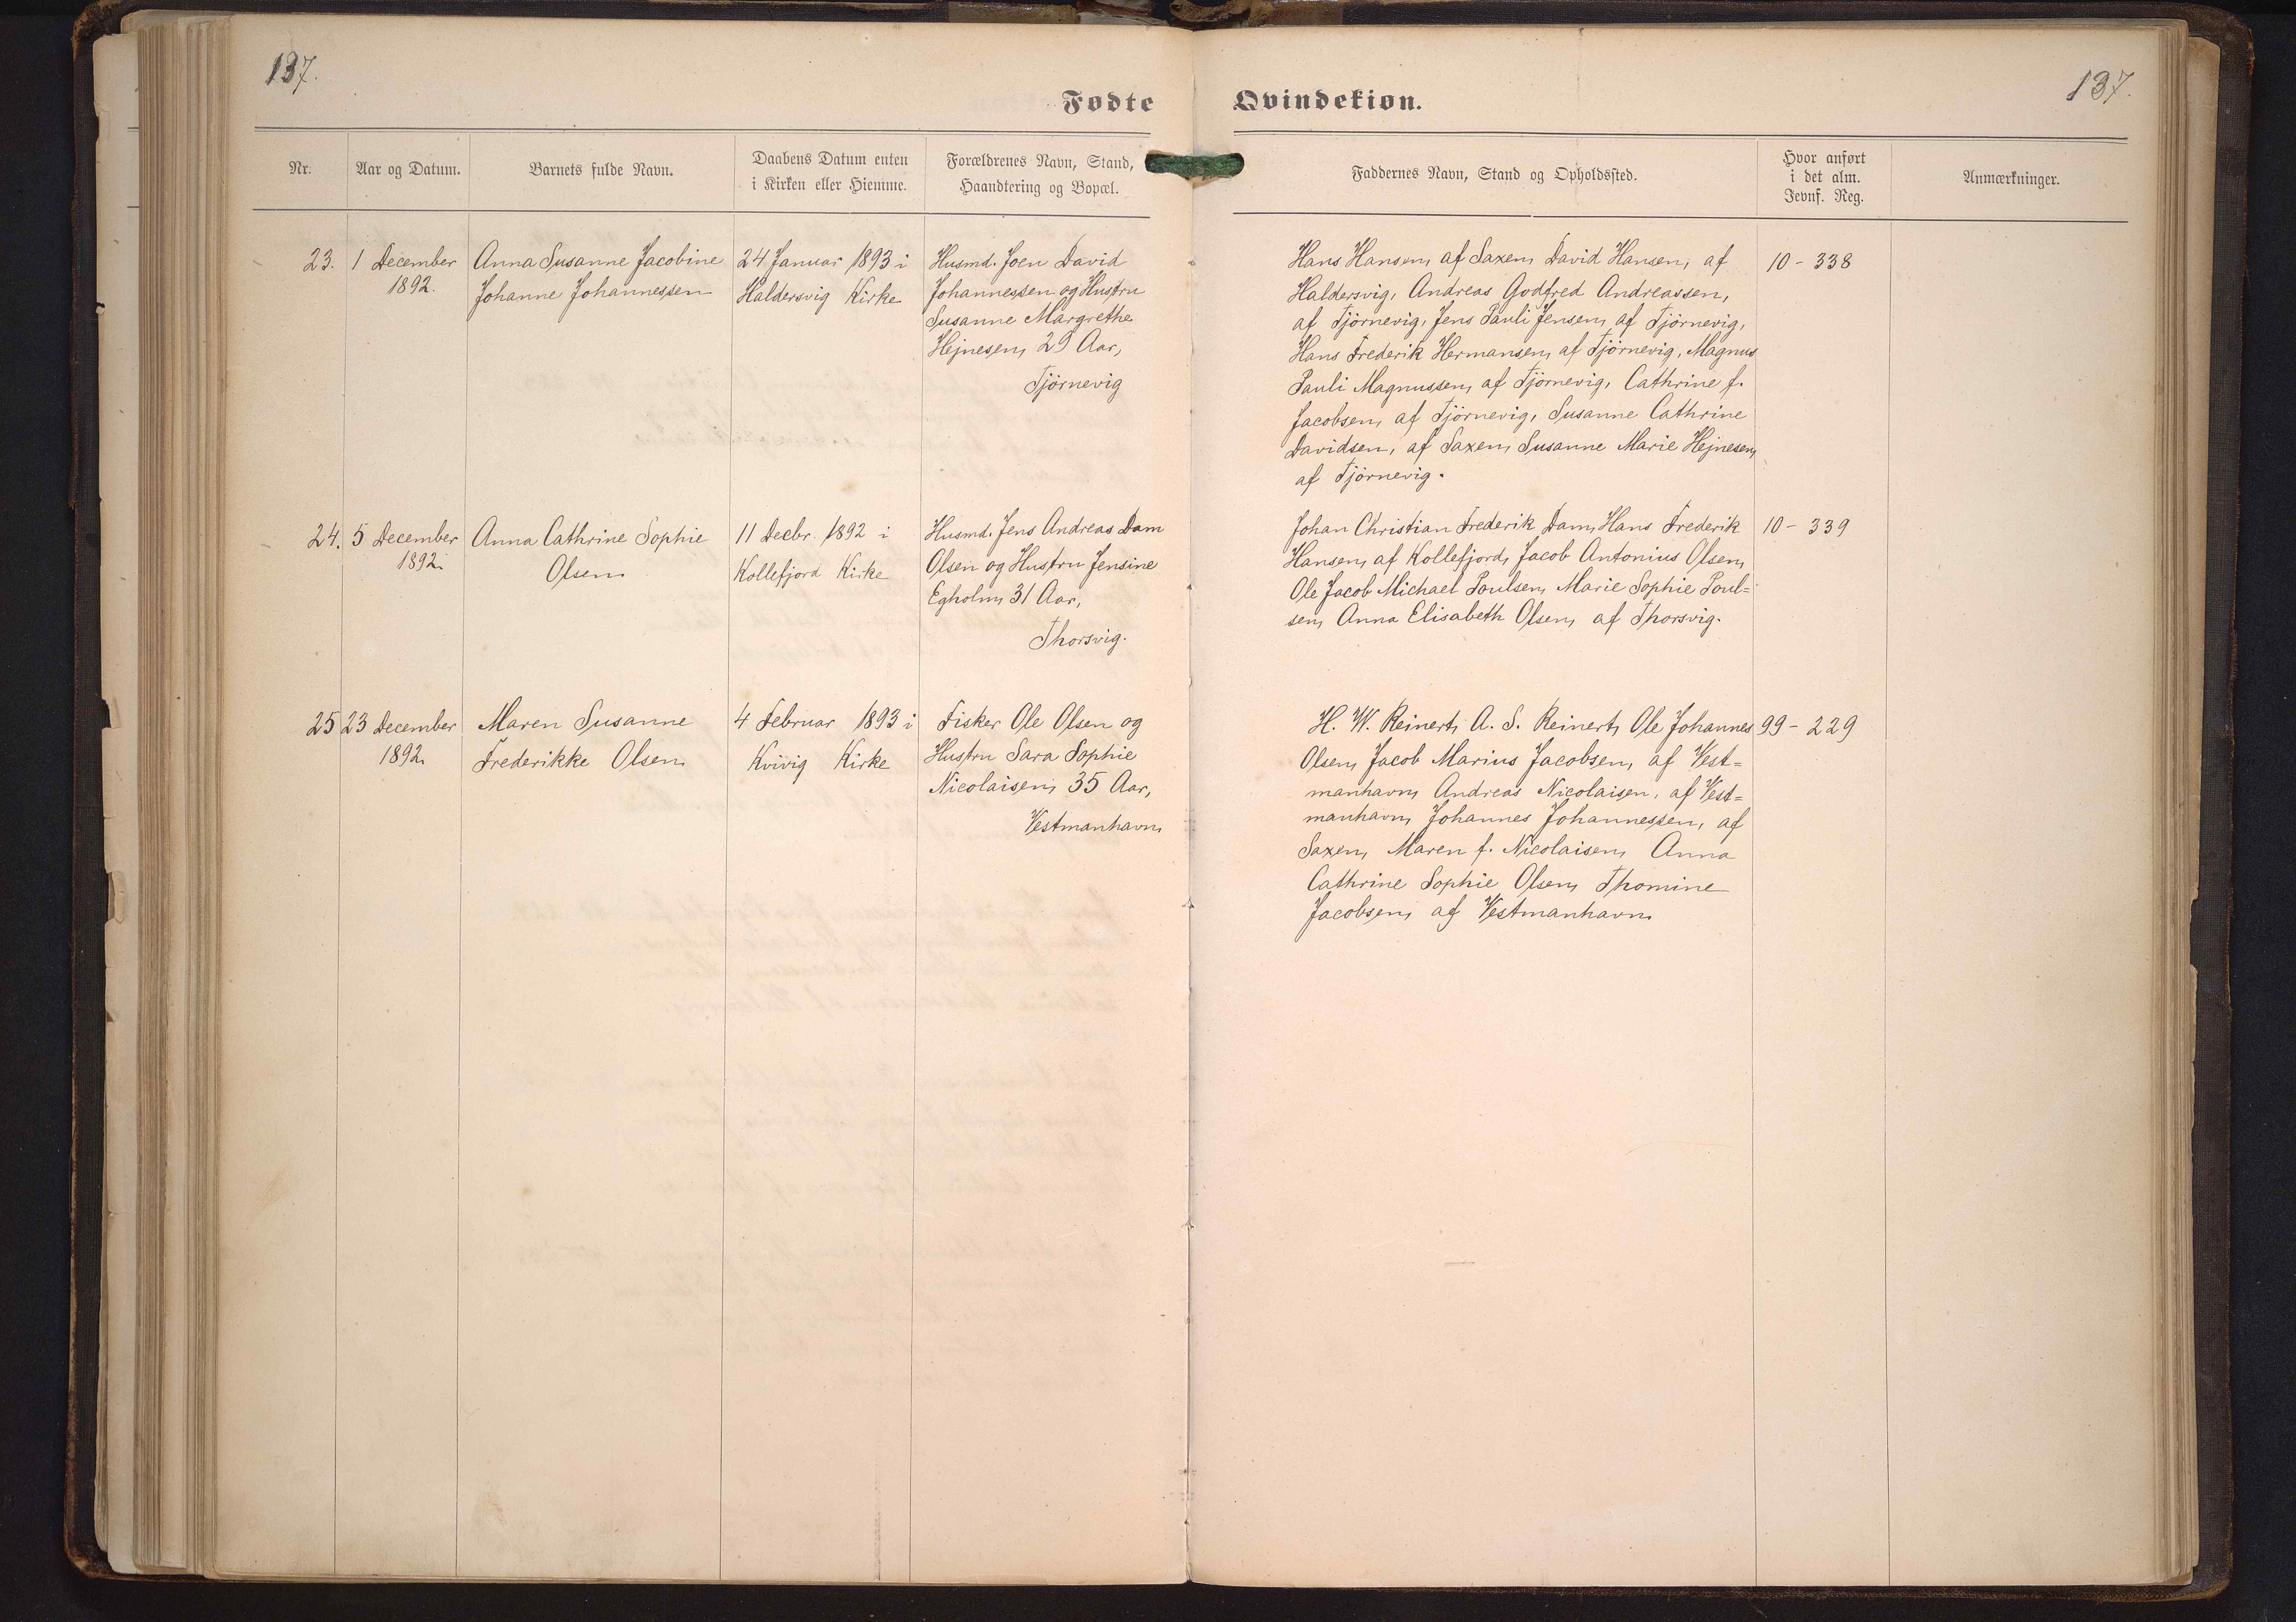 137.
137.
Fødte
Qvindekiøn.
Nr.
Aar og Datum.
Barnets fulde Navn.
Daabens Datum enten
i Kirken eller Hiemme.
Forældrenes Navn, Stand,
Haandtering og Bopæl.
Faddernes Navn, Stand og Opholdssted.
Hvor anført
i det alm.
Jevnf. Reg.
Anmærkninger.
23.
1 December
1892.
Anna Susanne Jacobine
Johanne Johannessen
24 Januar 1893 i
Haldersvig Kirke
Husmd. Joen David
Johannessen og Hustru
Susanne Margrethe
Hejnesen, 29 Aar,
Tjörnevig
Hans Hansen, af Saxen, David Hansen, af
Haldersvig, Andreas Godfred Andreassen,
af Tjörnevig, Jens Pauli Jensen, af Tjörnevig,
Hans Frederik Hermansen, af Tjörnevig, Magnus
Pauli Magnussen, af Tjörnevig, Cathrine f.
Jacobsen, af Tjörnevig, Susanne Cathrine
Davidsen, af Saxen, Susanne Marie Hejnesen,
af Tjörnevig.
10 - 338
24.
5 December
1892.
Anna Cathrine Sophie
Olsen
11 Decbr. 1892 i
Kollefjord Kirke
Husmd. Jens Andreas Dam
Olsen og Hustru Jensine
Egholm, 31 Aar,
Thorsvig.
Johan Christian Frederik Dam, Hans Frederik
Hansen, af Kollefjord, Jacob Antonius Olsen,
Ole Jacob Michael Poulsen, Marie Sophie Poul=
sen, Anna Elisabeth Olsen, af Thorsvig.
10 - 339
25
23 December
1892
Maren Susanne
Frederikke Olsen
4 Februar 1893 i
Kvivig Kirke
Fisker Ole Olsen og
Hustru Sara Sophie
Nicolaisen, 35 Aar,
Vestmanhavn
H. W. Reinert, A. S. Reinert, Ole Johannes
Olsen, Jacob Marius Jacobsen, af Vest=
manhavn, Andreas Nicolaisen, af Vest=
manhavn, Johannes Johannessen, af
Saxen, Maren f. Nicolaisen, Anna
Cathrine Sophie Olsen, Thomine
Jacobsen, af Vestmanhavn
99 - 229